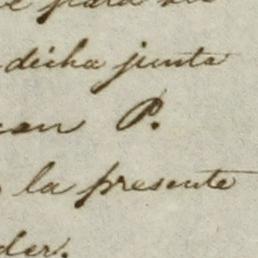 para
dicha junta
P.
la presente
der.